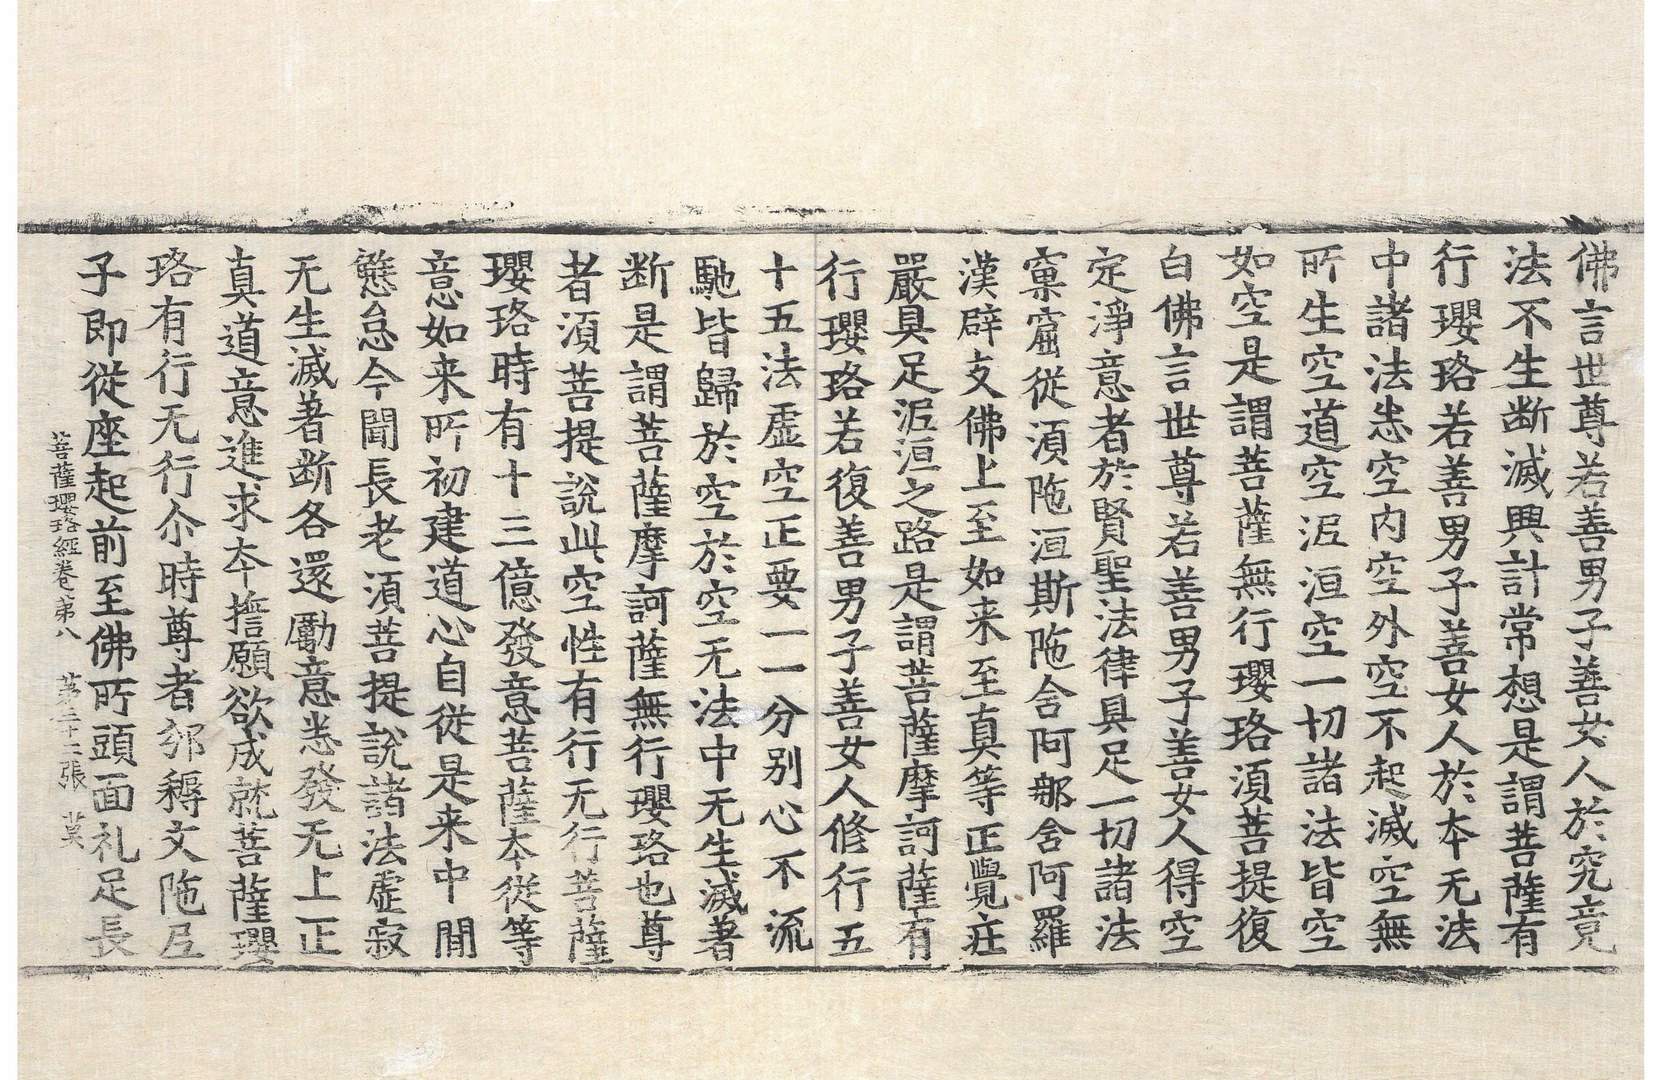 佛言世尊若善男子善女人於究竟
法不生断滅興計常想是謂菩薩有
行瓔珞若善男子善女人於本无法
中諸法悉空内空外空不起滅空無
所生空道空泥洹空一切諸法皆空
如空是謂菩薩無行瓔珞湏菩提復
白佛言世尊若善男子善女人得空
定淨意者於賢聖法律具足一切諸法
窠窟從湏陁洹斯陁含阿那含阿羅
漢辟支佛上至如来至真等正覺莊
嚴具足泥洹之路是謂菩薩摩訶薩有
行瓔珞若復善男子善女人修行五
十五法虛空正要一一分别心不流
馳皆歸於空於空无法中无生滅著
断是謂菩薩摩訶薩無行瓔珞也尊
者湏菩提說此空性有行无行菩薩
瓔珞時有十三億發意菩薩本從等
意如来所初建道心自從是来中間
懈怠今聞長老湏菩提說諸法虛寂
无生滅著断各還勵意悉發无上正
真道意進求本擔願欲成就菩薩瓔
珞有行无行尒時尊者邠耨文陁尼
子即從座起前至佛所頭面礼足長
菩薩瓔珞經卷第八 第二十二張 莫